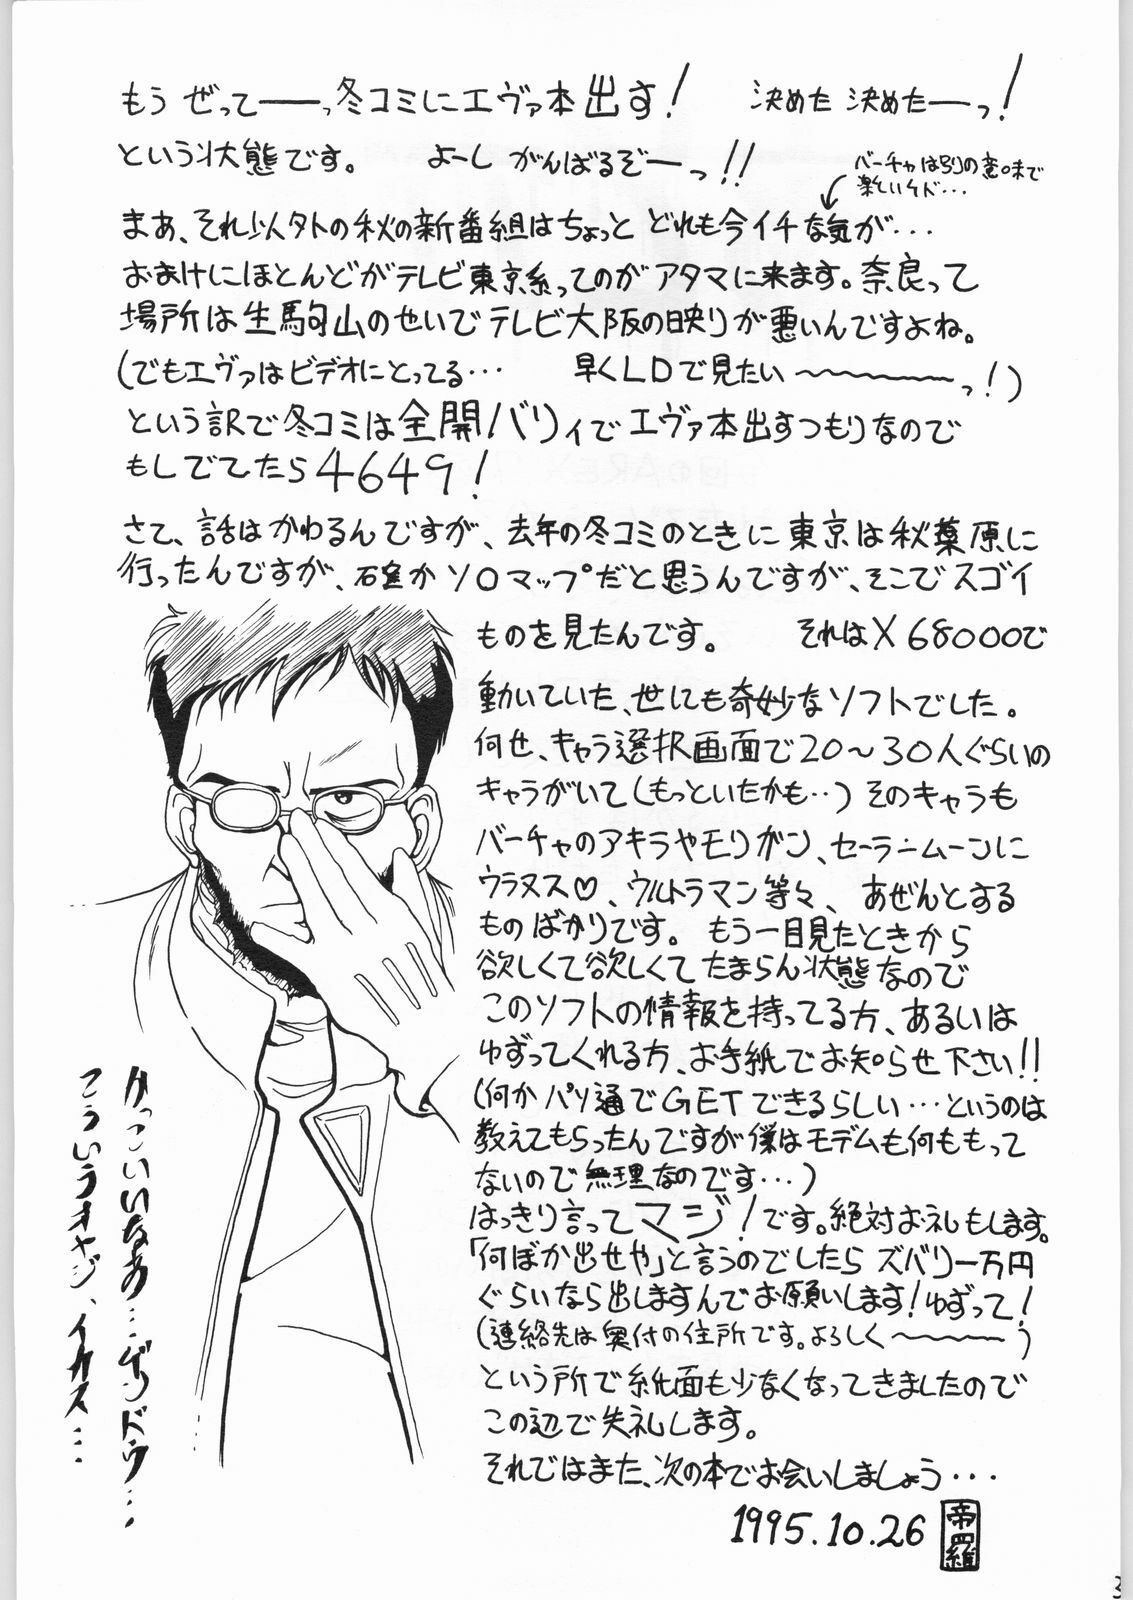 もう ぜって――っ冬コミにエヴァ本出す!　決めた 決めた――っ!
という状態です。　よーし がんばるぞ――っ!!
バーチャは別の意味で
楽しいケド・・・
まあ、それ以外の秋の新番組はちょっと どれも今イチな気が・・・
おまけにほとんどがテレビ東京系ってのが アタマに来ます。奈良って
場所は生駒山のせいでテレビ大阪の映りが悪いんですよね。
(でもエヴァはビデオにとってる・・・　早くLDで見たい〜〜〜っ!)
という訳で冬コミは全開バリィでエヴァ本出すつもりなので
もしでてたら4649!
さて、話はかわるんですが、去年の冬コミのときに東京は秋葉原に
行ったんですが、確かソロマップだと思うんですが、そこでスゴイ
ものを見たんです。　それはX68000で
動いていた、世にも奇妙なソフトでした。
何せ、キャラ選択画面で20〜30人ぐらいの
キャラがいて(もっといたかも・・)そのキャラも
バーチャのアキラやモリガン、セーラームーンに
ウラヌス♡、ウルトラマン等々、あぜんとする
ものばかりです。もう一目見たときから
欲しくて欲しくてたまらん状態なので
このソフトの情報を持ってる方、あるいは
ゆずってくれる方、お手紙でお知らせ下さい!!
(何かパソ通でGETできるらしい・・・というのは
教えてもらったんですが僕はモデムも何ももって
ないので無理なのです・・・)
はっきり言ってマジ!です。絶対お礼もします。
「何ぼか出せや」と言うのでしたら ズバリ一万円
ぐらいなら出しますんでお願いします!ゆずって!
(連絡先は奥付の住所です。よろしく〜〜〜)
という所で紙面も少なくなってきましたので
この辺で失礼します。
それではまた、次の本でお会いしましょう・・・
1995.10.26
帝羅
かっこいいなあ・・・ゲンドウ・・・
こういうオヤジ、イカス・・・
3